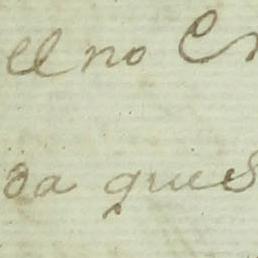 el no C
da ques